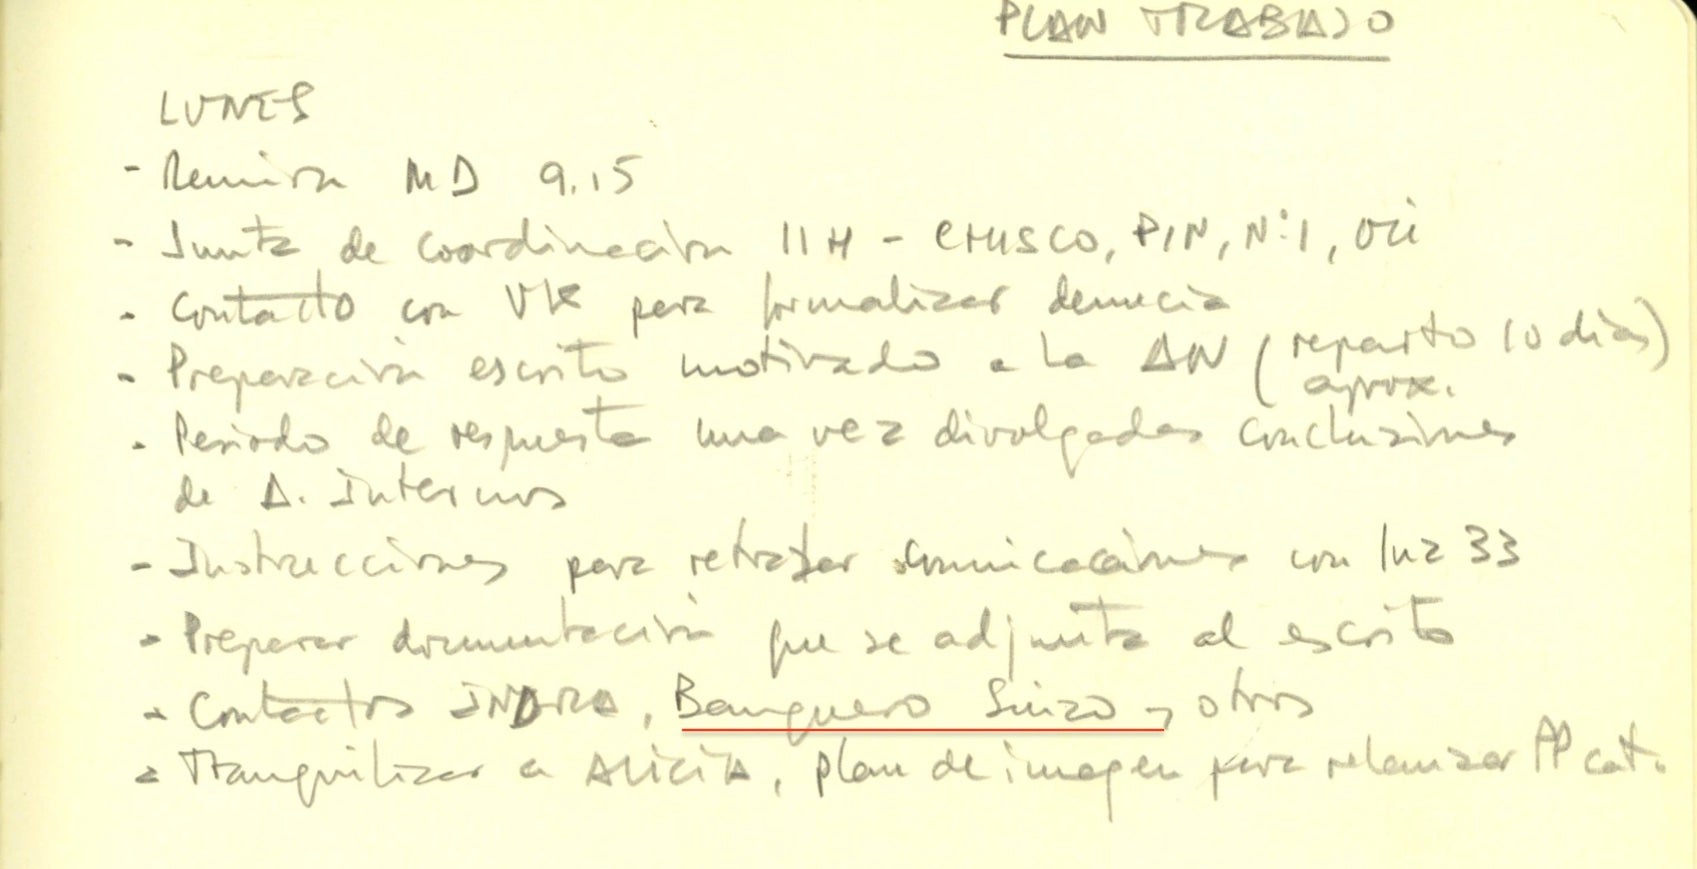 PLAN TRABAJO
LUNES
- Reunion MD 9.15
- Junta de coordinación 11H - CHUSCO, PIN, Nº1, Oli
- Contacto con VK para formalizar denucia
- Preparación escrito motivado a la AN (reparto 10 dias)
aprox.
- Periodo de respuesta una vez divulgadas conclusiones
de A. Internos
- Instrucciones para retrasar comunicaciones con luz 33
- Preparar documentación que se adjunta al escrito
- Contactos INDRA, Banquero Suizo y otros
- Tranquilizar a ALICIA, plan de imagen para relanzar PP cat.